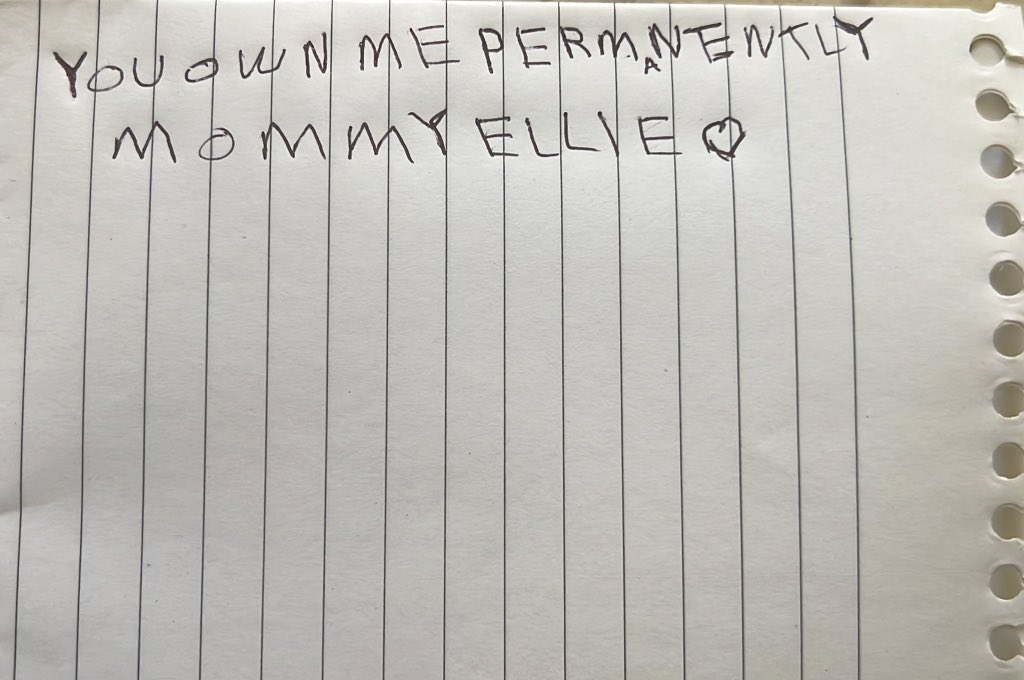 YOU OWN ME PERMANENTLY
MOMMY ELLIE ♡